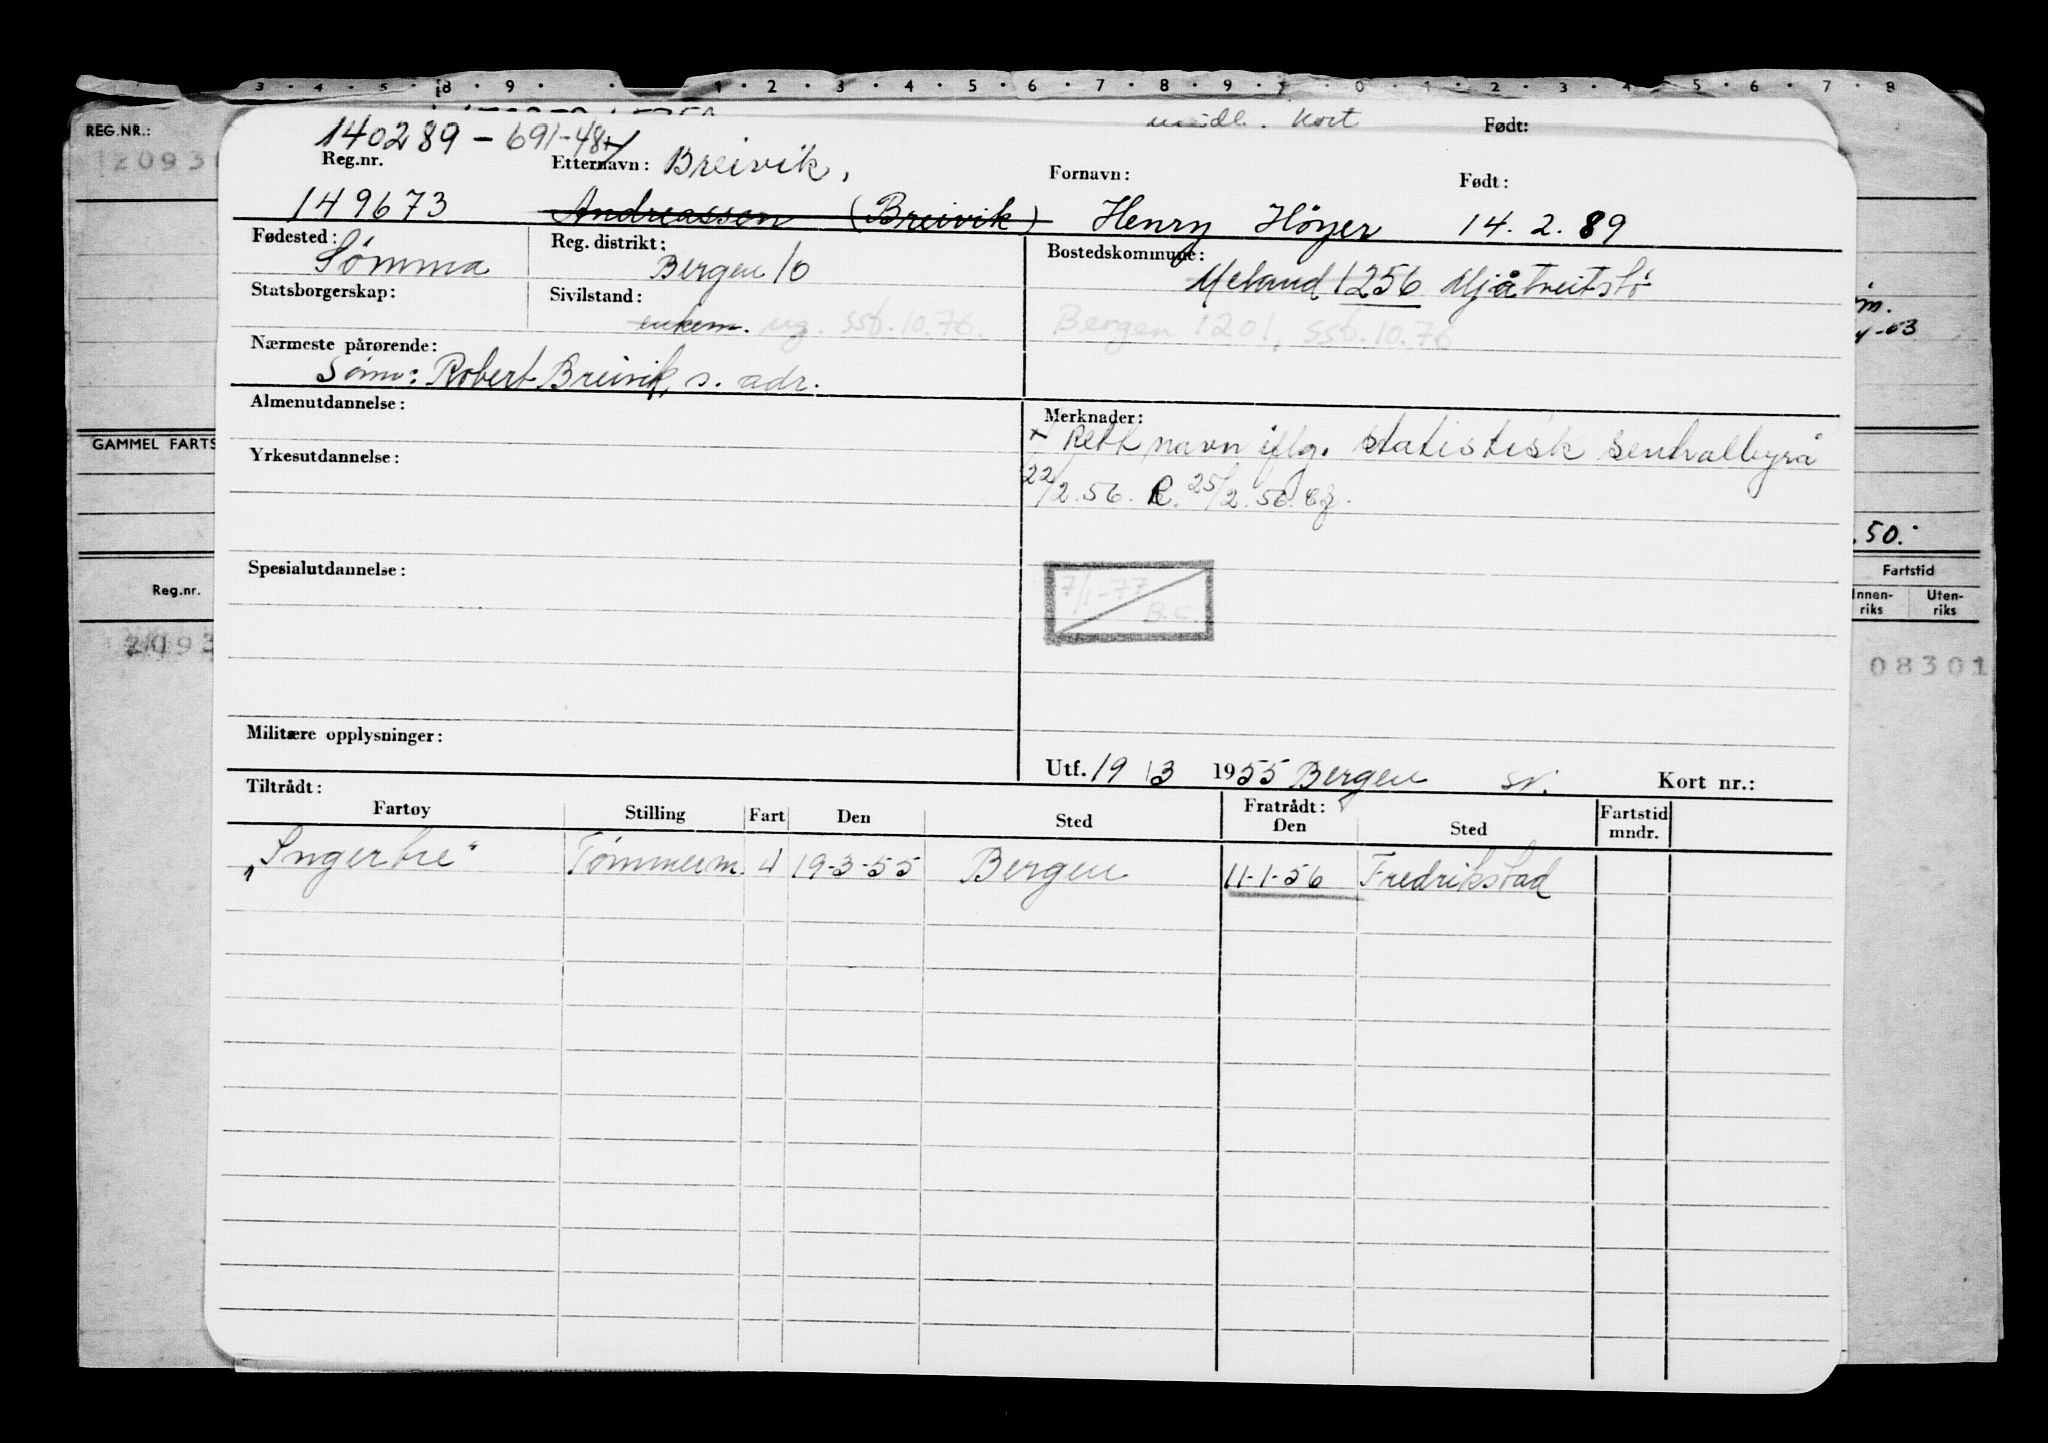 3 · 4 · 5 · 8 · 9 · 1 · 2 · 3 · 4 · 5 · 6 · 7 · 8 · 9 · 0 · 1 · 2 · 3 · 4 · 5 · 6 · 7 · 8
REG.NR.:
Kort Født:
140289 - 691-48
Reg.nr. Etternavn: Breivik, Fornavn: Født:
149673 Andreassen (Breivik) Henry Höyer 14. 2. 89
Fødested: Sömma Reg. distrikt: Bergen 10 Bostedskommune: Meland 1256 Mjåtveitstö
Statsborgerskap: Sivilstand: enkem. ug. ssb. 10.76. Bergen 1201, ssb. 10.76
Nærmeste pårørende:
Sönn: Robert Breivik, s. adr.
Almenutdannelse: Merknader:
+ Rett navn iflg. statistisk sentralbyrå
Yrkesutdannelse:
22/2.56. R. 25/2.56.
GAMMEL FARTS
50.
Spesialutdannelse:
7/1-77
B.C.
Reg.nr.
Fartstid
Innen-riks Uten-riks
08301
Militære opplysninger:
Utf. 19/3 1955 Bergen sv. Kort nr.:
Tiltrådt: Fratrådt:
Fartøy Stilling Fart Den Sted Den Sted Fartstid mndr.
"Ingertre" Tömmerm. 19-3-55 Bergen 11-1-56 Fredrikstad